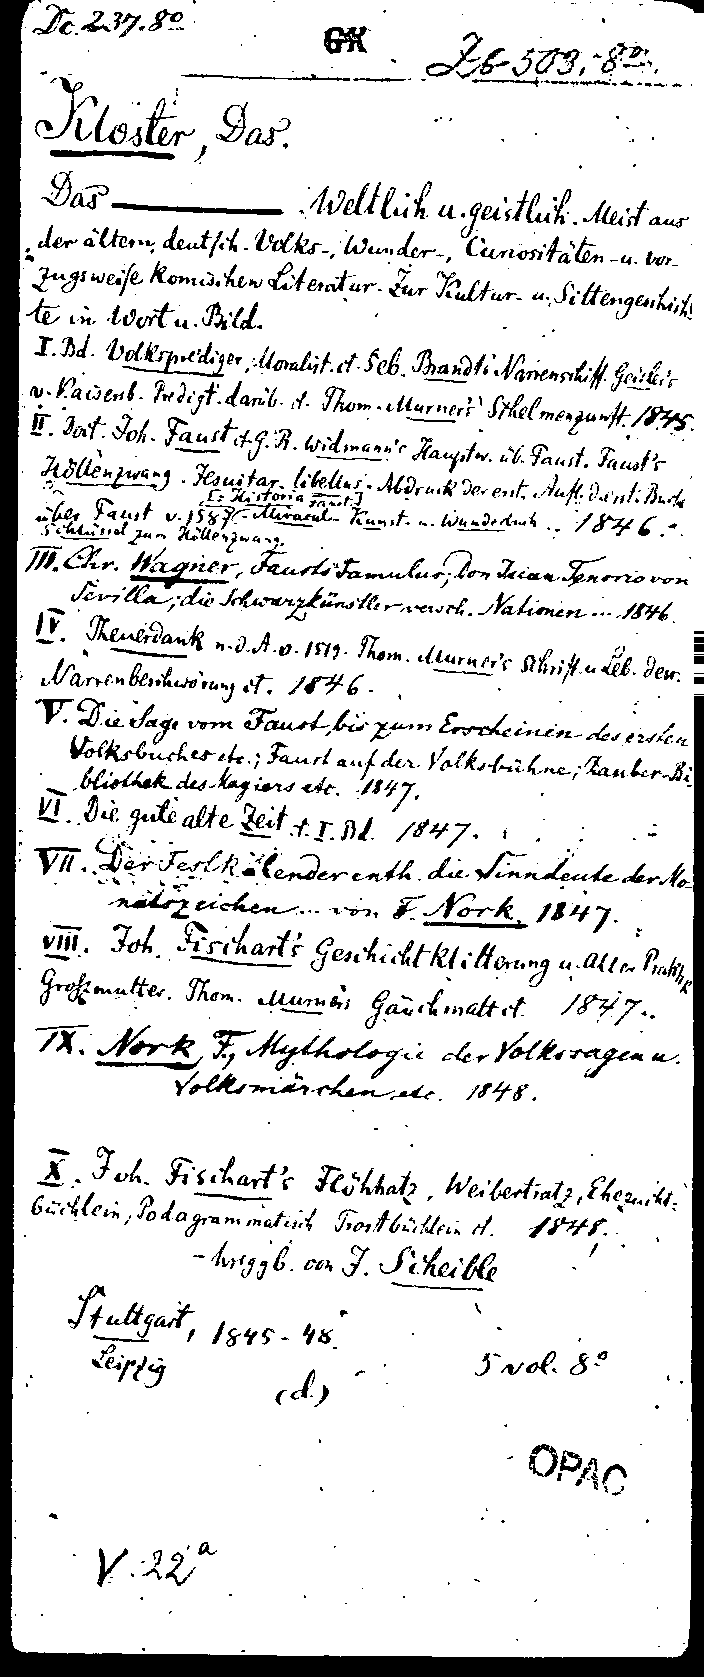 Dc. 237. 8º
GK
Zb 503. 8º
Kloster, Das.
Das ——— . Weltlich u. geistlich. Meist aus
der ältern deutsch. Volks-, Wunder-, Curiositäten- u. vor-
zugsweise komischen Literatur. Zur Kultur- u. Sittengeschich-
te in Wort u. Bild.
I. Bd. Volksprediger, Moralist. et. Seb. Brandt's Narrenschiff. Geiler's
v. Kaisersb. Predigt. darüb. et. Thom. Murner's Schelmenzunft. 1845.
II. Doct. Joh. Faust et. G. R. Widmann's Hauptw. üb. Faust. Faust's
Höllenzwang. Jesuitar. libellus. Abdruck der erst. Aufl. d. erst. Buchs
[: Historia Faust:]
über Faust v. 1587. Miracul- Kunst- u. Wunderbuch .. 1846.
Schlüssel zum Höllenzwang.
III. Chr. Wagner, Fausts Famulus; Don Juan Tenorio von
Sevilla; die Schwarzkünstler versch. Nationen ... 1846.
IV. Theuerdank n. d. A. v. 1519. Thom. Murner's Schrift. u. Leb. dess.
Narrenbeschwörung et. 1846.
V. Die Sage vom Faust, bis zum Erscheinen des ersten
Volksbuches etc.; Faust auf der Volksbühne; Zauber-Bi-
bliothek des Magiers etc. 1847.
VI. Die gute alte Zeit f. I. Bd. 1847.
VII. Der Festkalender enth. die Sinndeute der Mo-
natszeichen ... von F. Nork. 1847.
VIII. Joh. Fischart's Geschichtklitterung u. Aller Praktik
Großmutter. Thom. Murner's Gäuchmatt et. 1847.
IX. Nork, F., Mythologie der Volkssagen u.
Volksmärchen etc. 1848.
X. Joh. Fischart's Flöhhatz, Weibertratz, Ehezucht-
büchlein, Podagrammatisch Trostbüchlein et. 1848.
- hrsggb. von J. Scheible
Stuttgart, 1845-48.
Leipzig
5 vol. 8º
(d.)
OPAC
V. 22ª